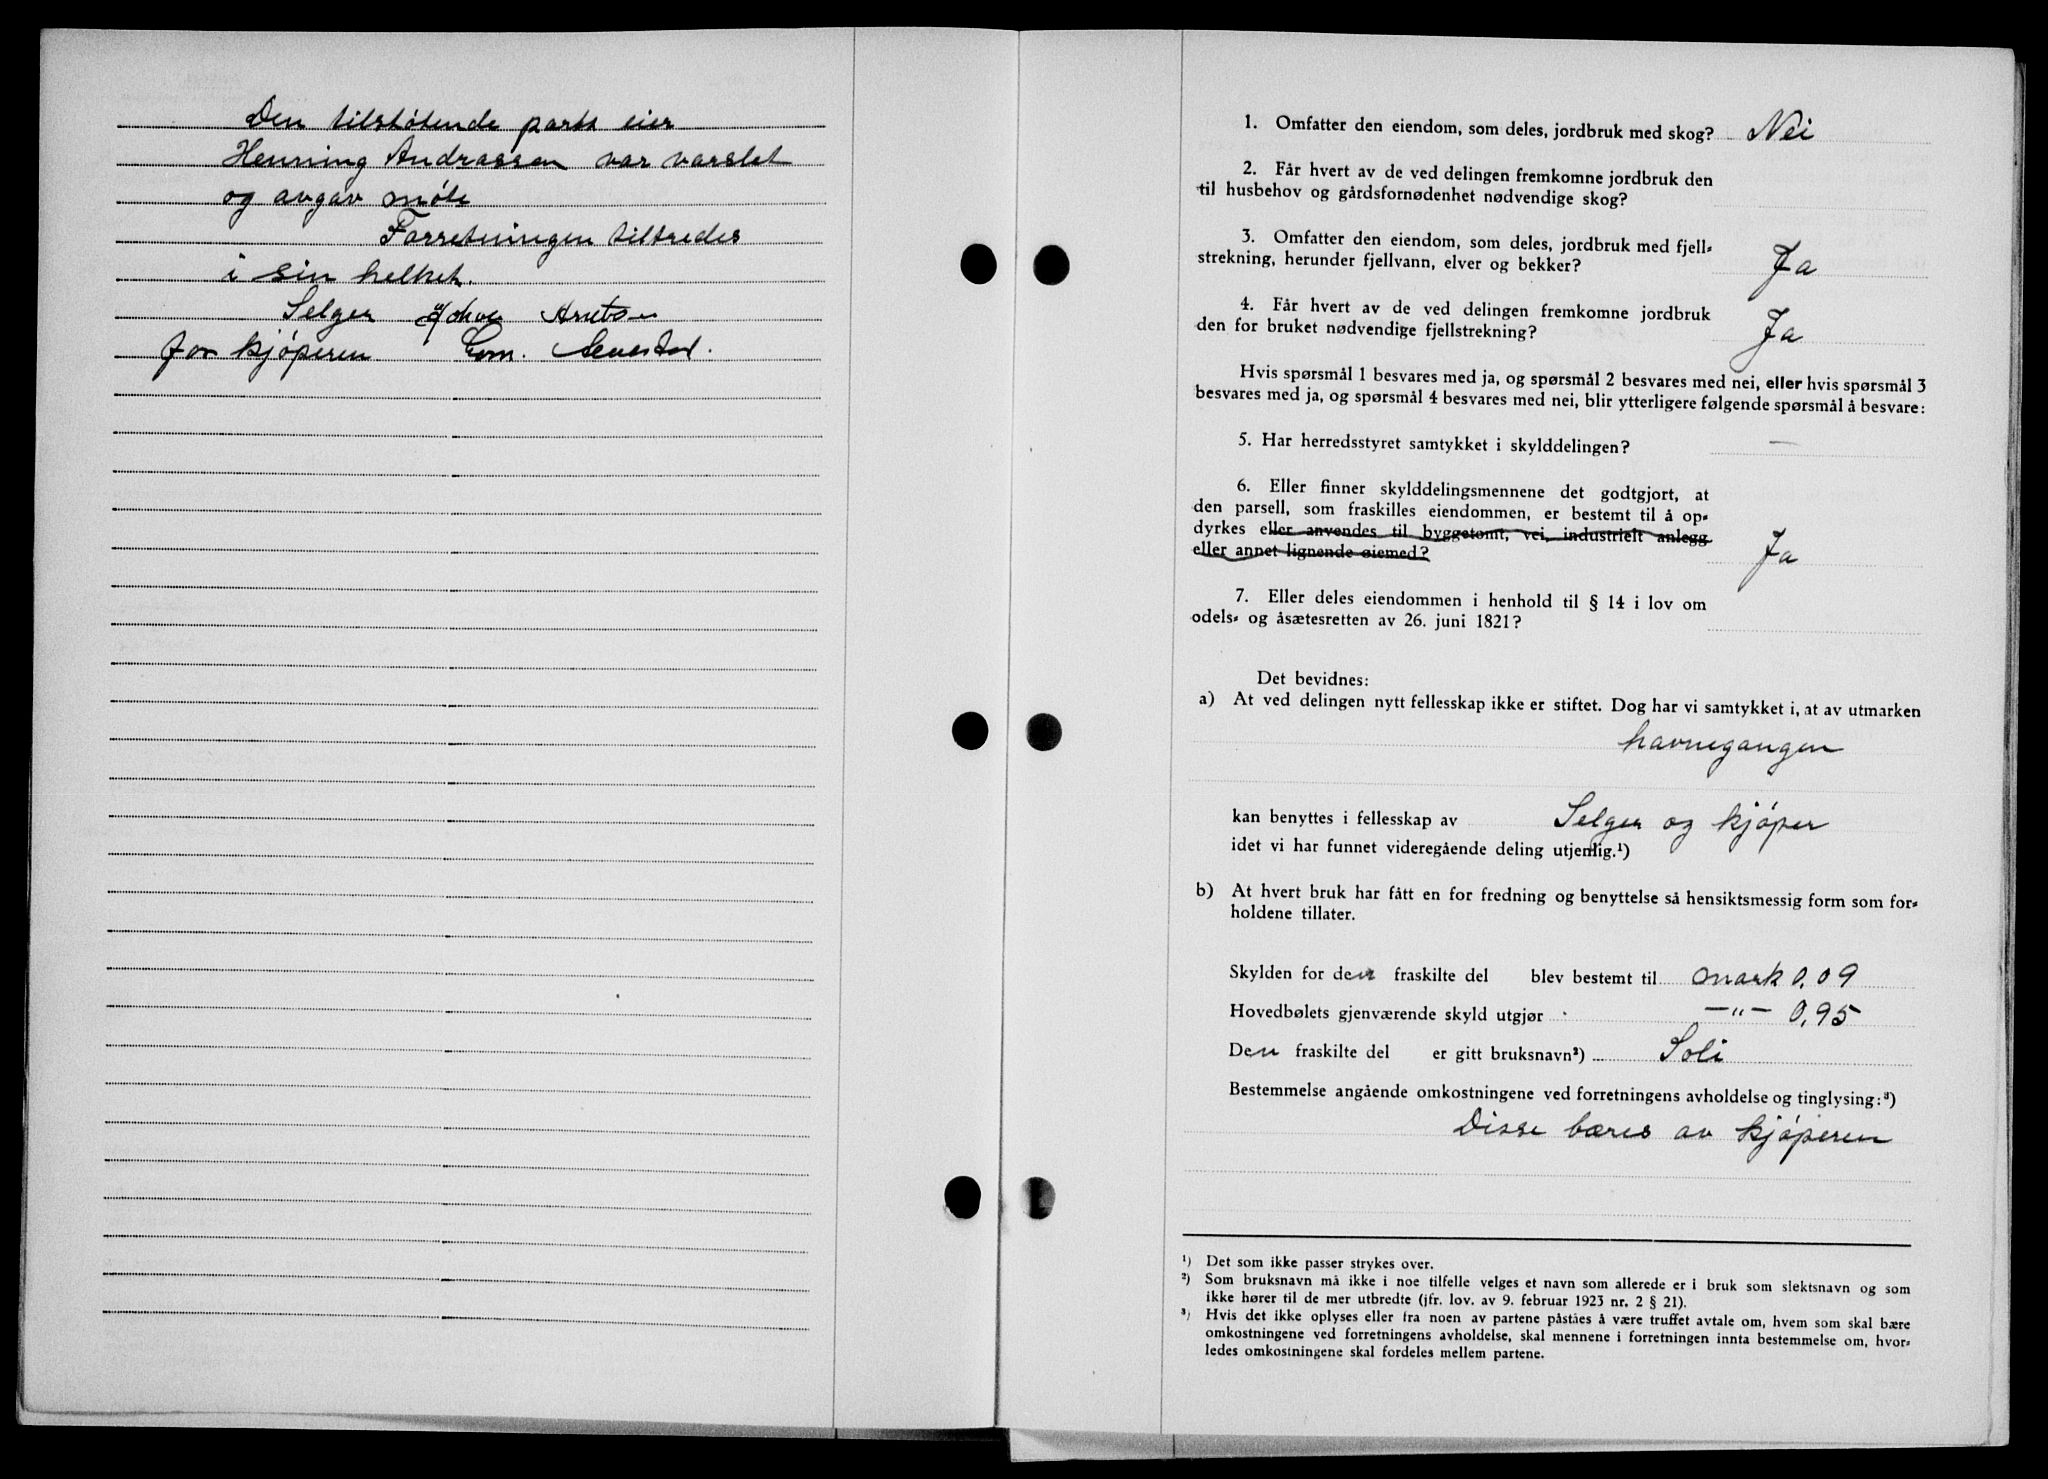 Den tilstøtende parts eier
Henning Andrassen var varslet
og avgav møte
Forretningen tiltredes
i sin helhet.
Selger Johve
for kjøperen
1. Omfatter den eiendom, som deles, jordbruk med skog? Nei
2. Får hvert av de ved delingen fremkomne jordbruk den
til husbehov og gårdsfornødenhet nødvendige skog?
3. Omfatter den eiendom, som deles, jordbruk med fjell-
strekning, herunder fjellvann, elver og bekker? Ja
4. Får hvert av de ved delingen fremkomne jordbruk
den for bruket nødvendige fjellstrekning? Ja
Hvis spørsmål 1 besvares med ja, og spørsmål 2 besvares med nei, eller hvis spørsmål 3
besvares med ja, og spørsmål 4 besvares med nei, blir ytterligere følgende spørsmål å besvare:
5. Har herredsstyret samtykket i skylddelingen? —
6. Eller finner skylddelingsmennene det godtgjort, at
den parsell, som fraskilles eiendommen, er bestemt til å op-
dyrkes eller anvendes til byggetomt, vei, industrielt anlegg
eller annet lignende øiemed? Ja
7. Eller deles eiendommen i henhold til § 14 i lov om
odels- og åsætesretten av 26. juni 1821?
Det bevidnes:
a) At ved delingen nytt fellesskap ikke er stiftet. Dog har vi samtykket i, at av utmarken
havnegangen
kan benyttes i fellesskap av Selger og kjøper
idet vi har funnet videregående deling utjenlig.¹)
b) At hvert bruk har fått en for fredning og benyttelse så hensiktsmessig form som for-
holdene tillater.
Skylden for den fraskilte del blev bestemt til mark 0,09
Hovedbølets gjenværende skyld utgjør —"— 0,95
Den fraskilte del er gitt bruksnavn²) Soli
Bestemmelse angående omkostningene ved forretningens avholdelse og tinglysing:³)
Disse bæres av kjøperen
¹) Det som ikke passer strykes over.
²) Som bruksnavn må ikke i noe tilfelle velges et navn som allerede er i bruk som slektsnavn og som
ikke hører til de mer utbredte (jfr. lov. av 9. februar 1923 nr. 2 § 21).
³) Hvis det ikke oplyses eller fra noen av partene påståes å være truffet avtale om, hvem som skal bære
omkostningene ved forretningens avholdelse, skal mennene i forretningen innta bestemmelse om, hvor-
ledes omkostningene skal fordeles mellem partene.